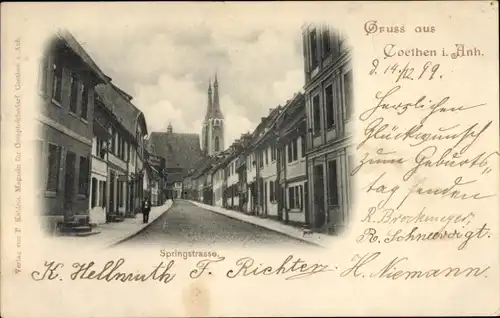 Gruss aus
Coethen i. Anh.
d. 14/12. 99.
Herzlichen
Glückwunsch
zum Geburts"
tag senden
R. Brockmeyer
R. Schneevoigt.
Springstrasse.
K. Hellmuth F. Richter H. Niemann.
Verlag von Magazin für Gelegenheitsbedarf, Coethen i. Anh.